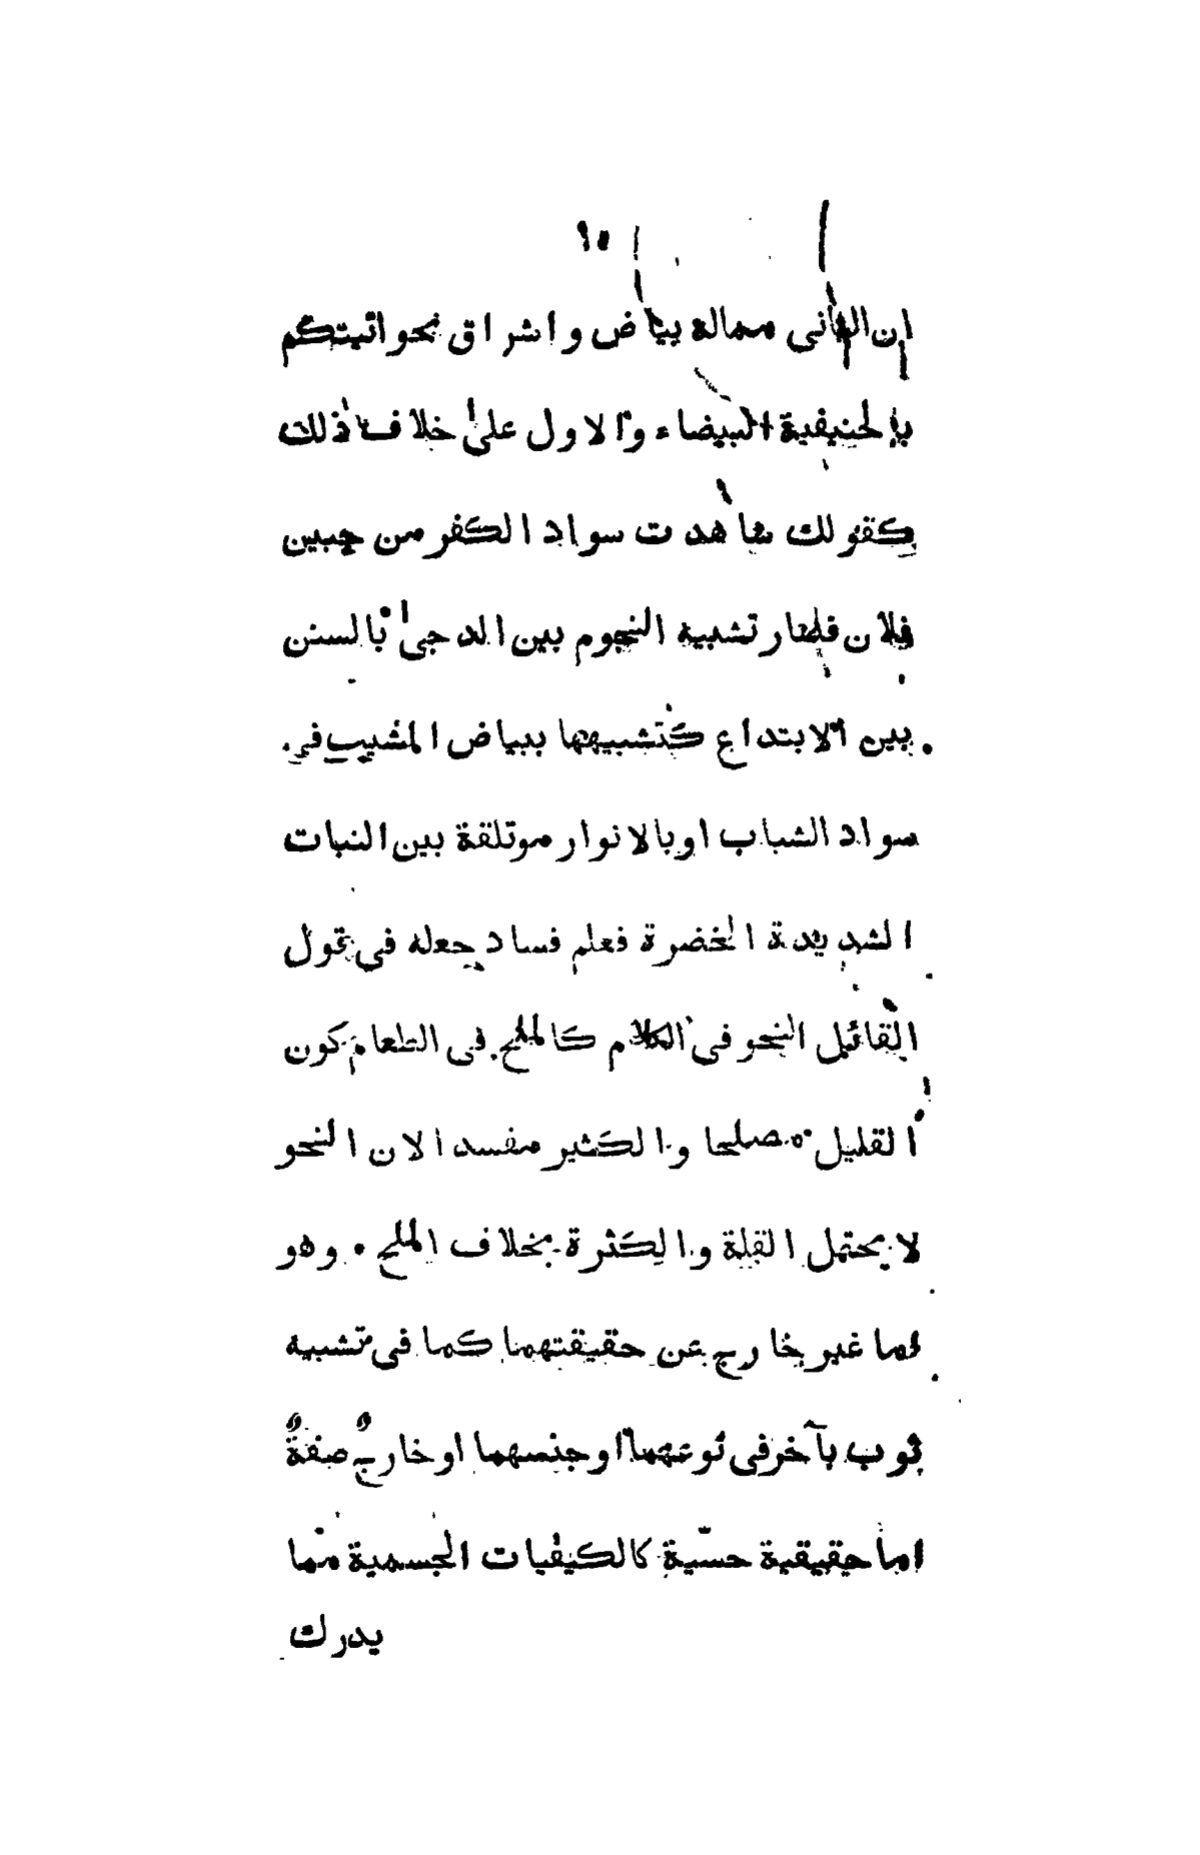 ٩٥
ان الثانى مماله بياض واشراق نحو اتيتكم
بالحنيفية البيضاء والاول على خلاف ذلك
كقولك شاهدت سواد الكفر من جبين
فلان فصار تشبيه النجوم بين الدجى بالسنن
بين الابتداع كتشبيهها ببياض المشيب فى
سواد الشباب اوبالانوار موتلقة بين النبات
الشديدة الخضرة فعلم فساد جعله فى قول
القائل النحو فى الكلام كالملح فى الطعام كون
القليل مصلحا والكثير مفسدا لان النحو
لا يحتمل القلة والكثرة بخلاف الملح . وهو
اما غير خارج عن حقيقتهما كما فى تشبيه
ثوب بآخر فى نوعهما اوجنسهما اوخارجٌ صفةٌ
اما حقيقية حسّية كالكيفيات الجسمية مما
يدرك